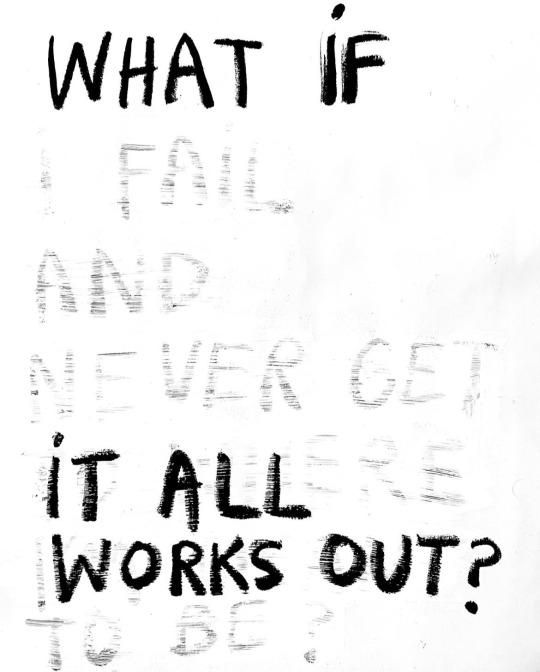 WHAT iF
I FAiL
AND
NEVER GET
iT ALL
WORKS OUT?
TO BE?